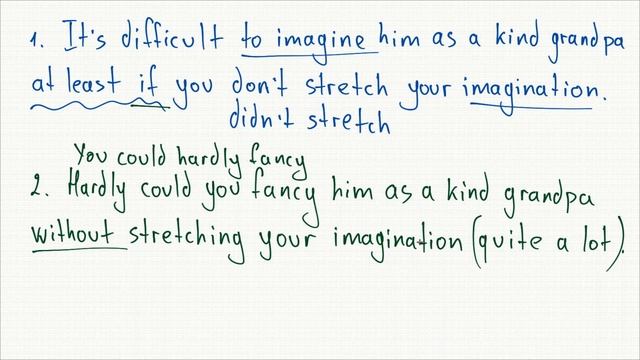 1. It's difficult to imagine him as a kind grandpa
at least if you don't stretch your imagination.
didn't stretch
You could hardly fancy
2. Hardly could you fancy him as a kind grandpa
without stretching your imagination (quite a lot).